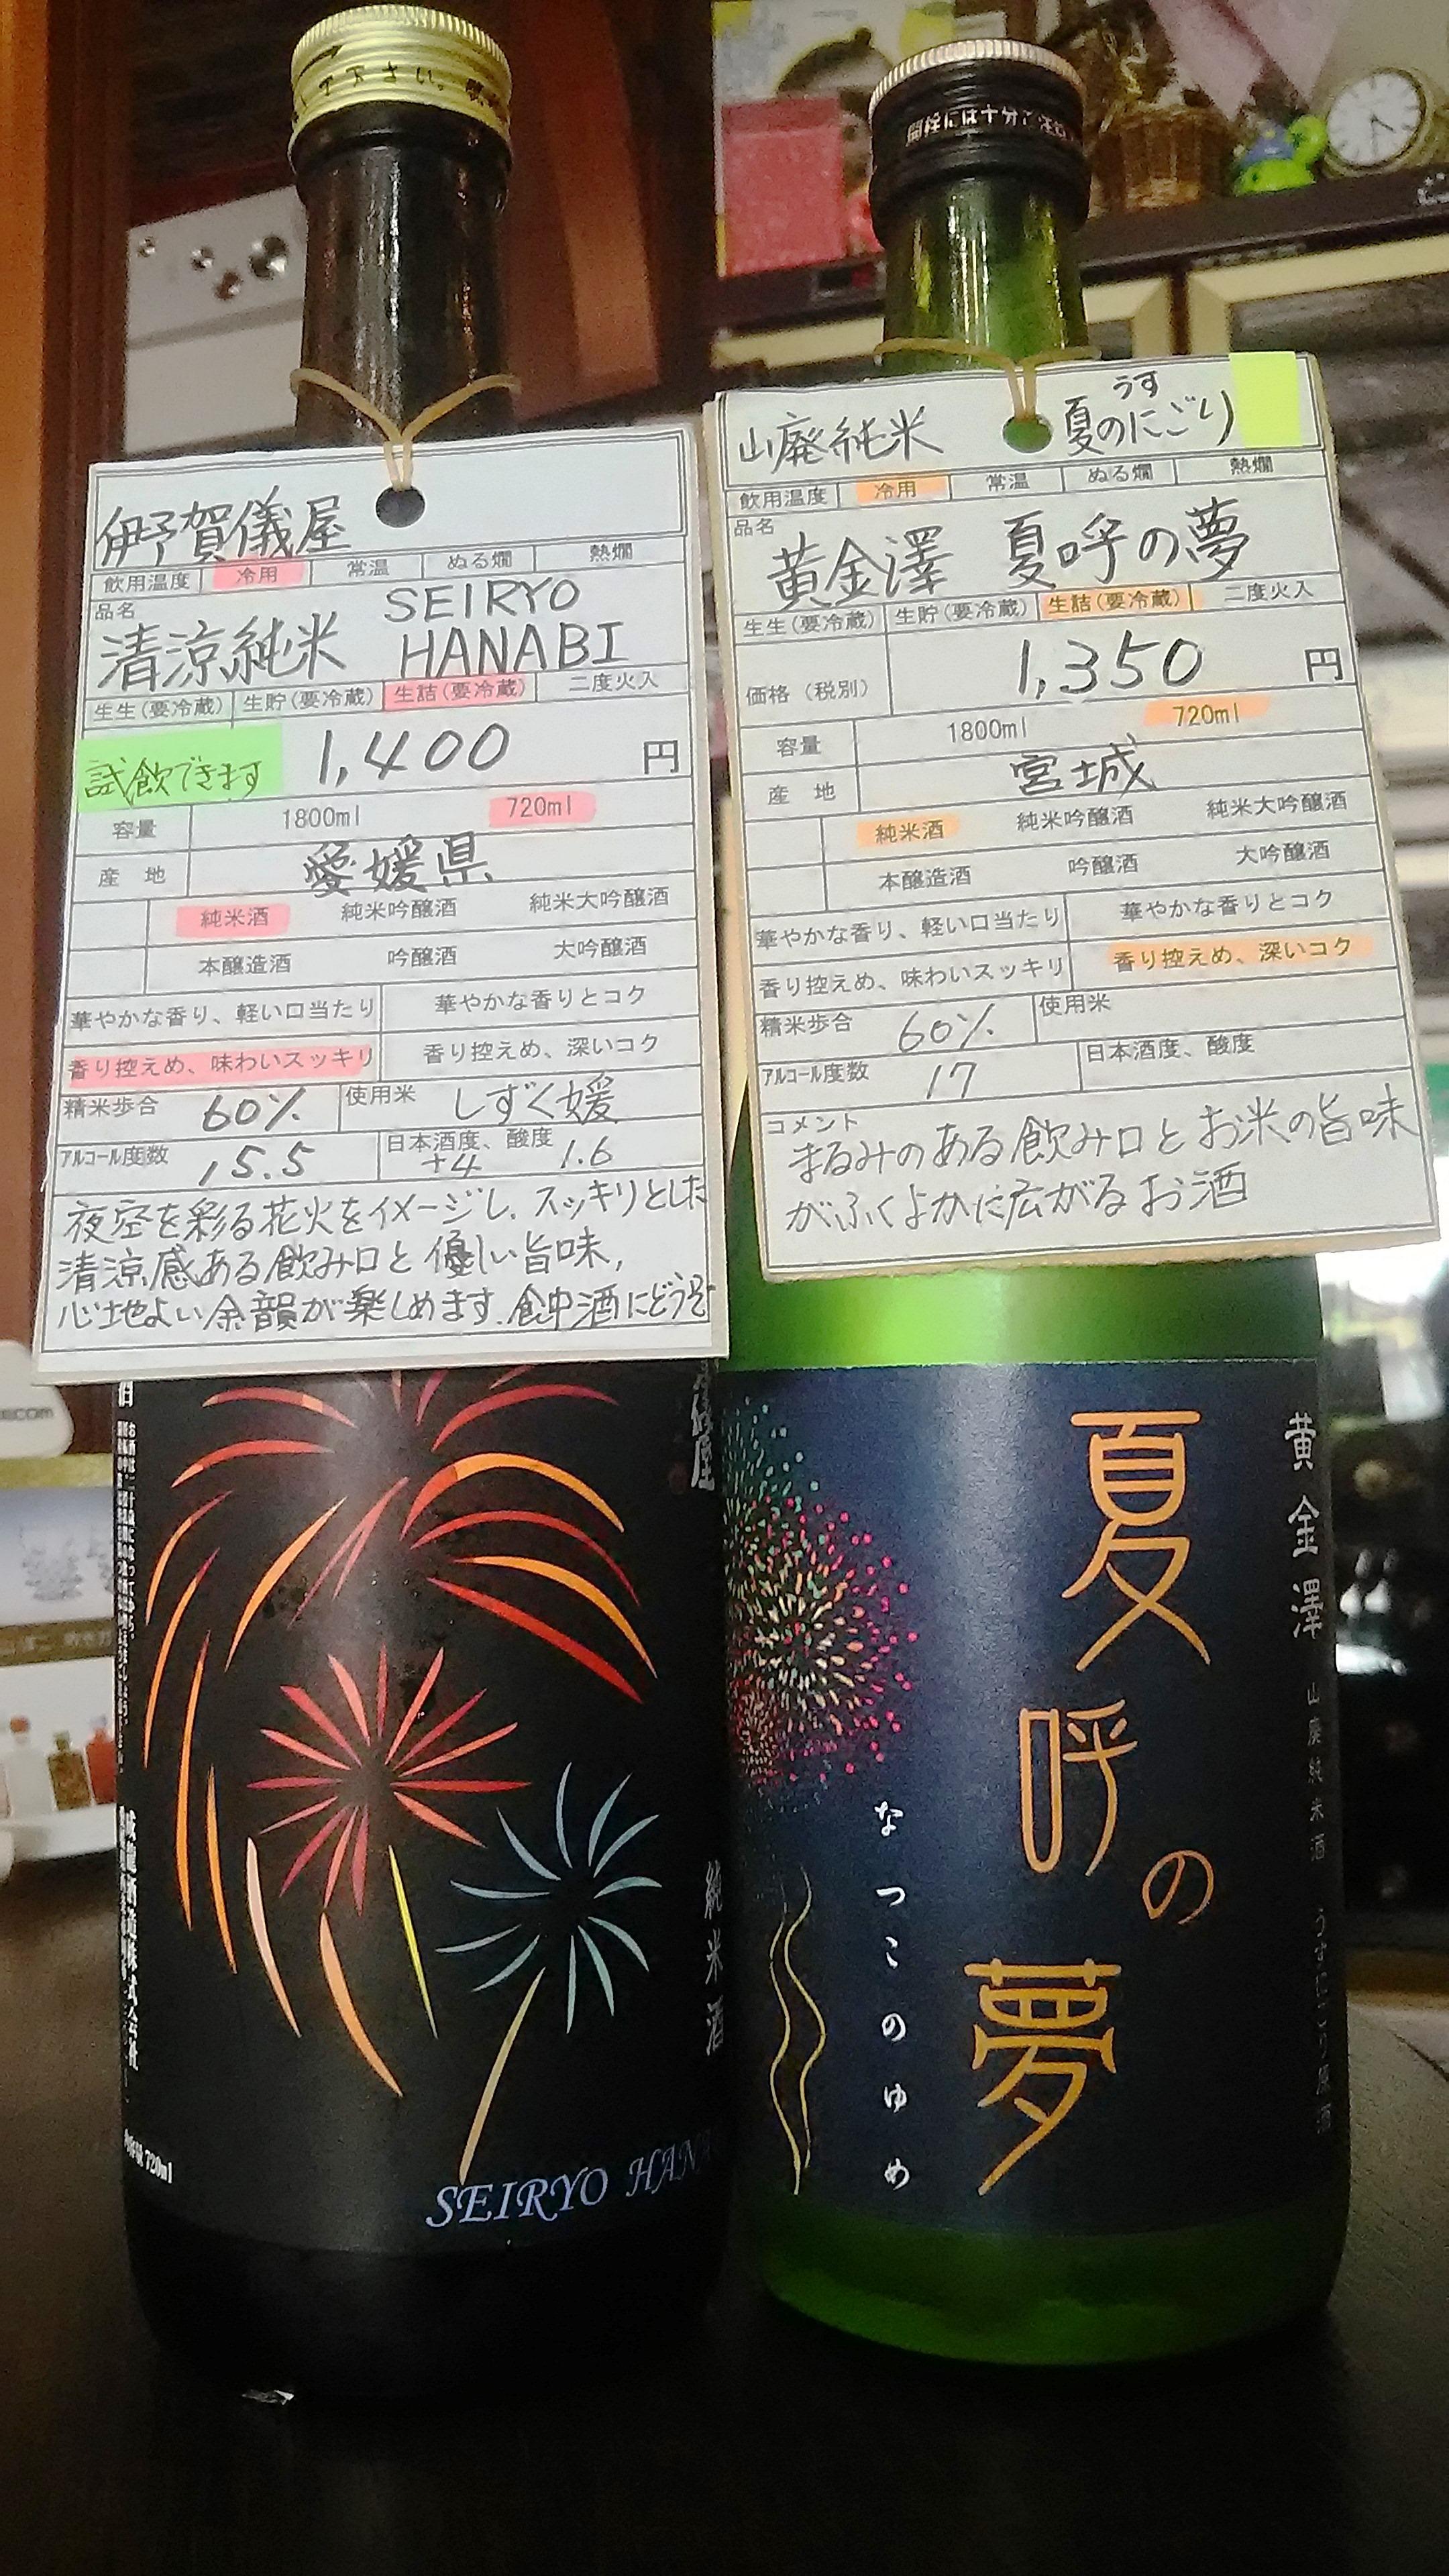 開栓には十分ご注意
伊予賀儀屋
飲用温度 冷用 常温 ぬる燗 熱燗
品名
清涼純米 SEIRYO
HANABI
生生(要冷蔵) 生貯(要冷蔵) 生詰(要冷蔵) 二度火入
試飲できます 1,400 円
容量 1800ml 720ml
産 地 愛媛県
純米酒 純米吟醸酒 純米大吟醸酒
本醸造酒 吟醸酒 大吟醸酒
華やかな香り、軽い口当たり 華やかな香りとコク
香り控えめ、味わいスッキリ 香り控えめ、深いコク
精米歩合 60% 使用米 しずく媛
アルコール度数 15.5 日本酒度、酸度 +4 1.6
夜空を彩る花火をイメージし、スッキリとした
清涼感ある飲み口と優しい旨味、
心地よい余韻が楽しめます。食中酒にどうぞ
山廃純米 夏のうすにごり
飲用温度 冷用 常温 ぬる燗 熱燗
品名
黄金澤 夏呼の夢
生生(要冷蔵) 生貯(要冷蔵) 生詰(要冷蔵) 二度火入
価格(税別) 1,350 円
容量 1800ml 720ml
産 地 宮城
純米酒 純米吟醸酒 純米大吟醸酒
本醸造酒 吟醸酒 大吟醸酒
華やかな香り、軽い口当たり 華やかな香りとコク
香り控えめ、味わいスッキリ 香り控えめ、深いコク
精米歩合 60% 使用米
アルコール度数 17 日本酒度、酸度
コメント
まるみのある飲み口とお米の旨味
がふくよかに広がるお酒
純米酒
成龍酒造株式会社
720ml
SEIRYO HANA
黄金澤
山廃純米酒 うすにごり原酒
夏呼の夢
なつこのゆめ